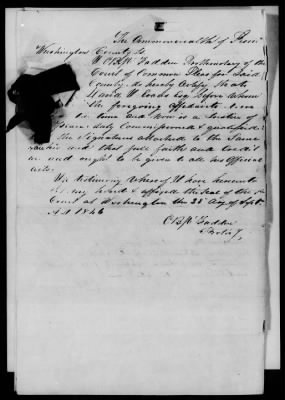 The Commonwealth of Penn
Washington County Ss
I OBM Fadden Prothonotary of the
Court of Common Pleas for Said
County do hereby Certify that
David Esq before whom
the foregoing affidavits
time and now a Justice of
Peace duly Commissioned & qualified
the signature attached is the same
and that full faith and credit
is and ought to be given to all his official
acts
In testimony whereof I have hereunto
set my hand & affixed the seal of the sd
Court at Washington the 25 day of Sept
A D 1846
Fadden
Protoy